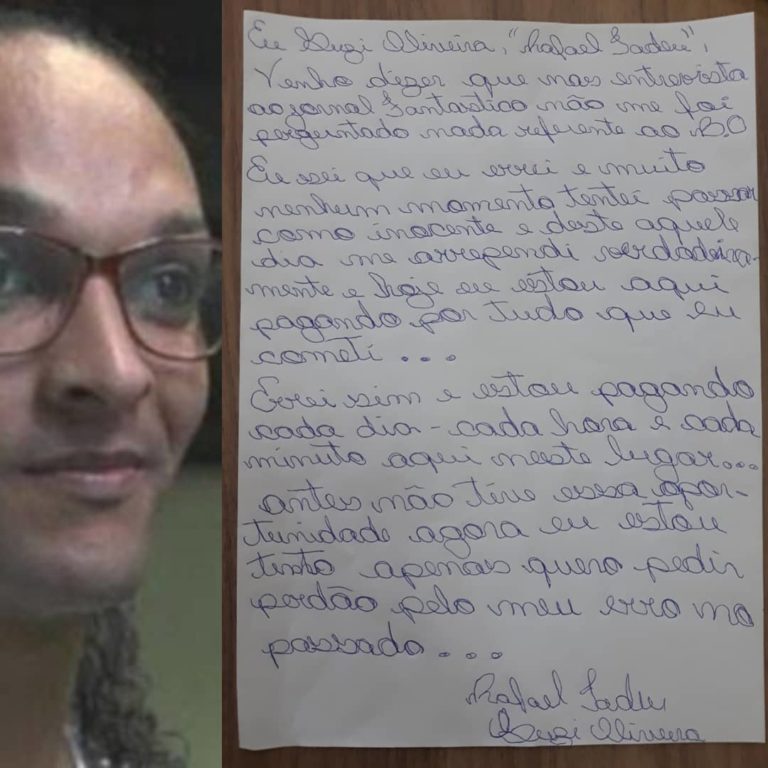 Eu Suzi Oliveira, "Rafael Tadeu",
Venho dizer que nas entrevista
ao jornal Fantastico não me foi
perguntado nada referente ao BO
Eu sei que eu errei e muito
nenhum momento tentei passar
como inocente e deste aquele
dia me arrependi verdadeira-
mente e hoje eu estou aqui
pagando por tudo que eu
cometi...
Errei sim e estou pagando
cada dia - cada hora e cada
minuto aqui neste lugar...
antes não tive essa opor-
tunidade agora eu estou
tento apenas quero pedir
perdão pelo meu erro no
passado...
Rafael Tadeu
Suzi Oliveira